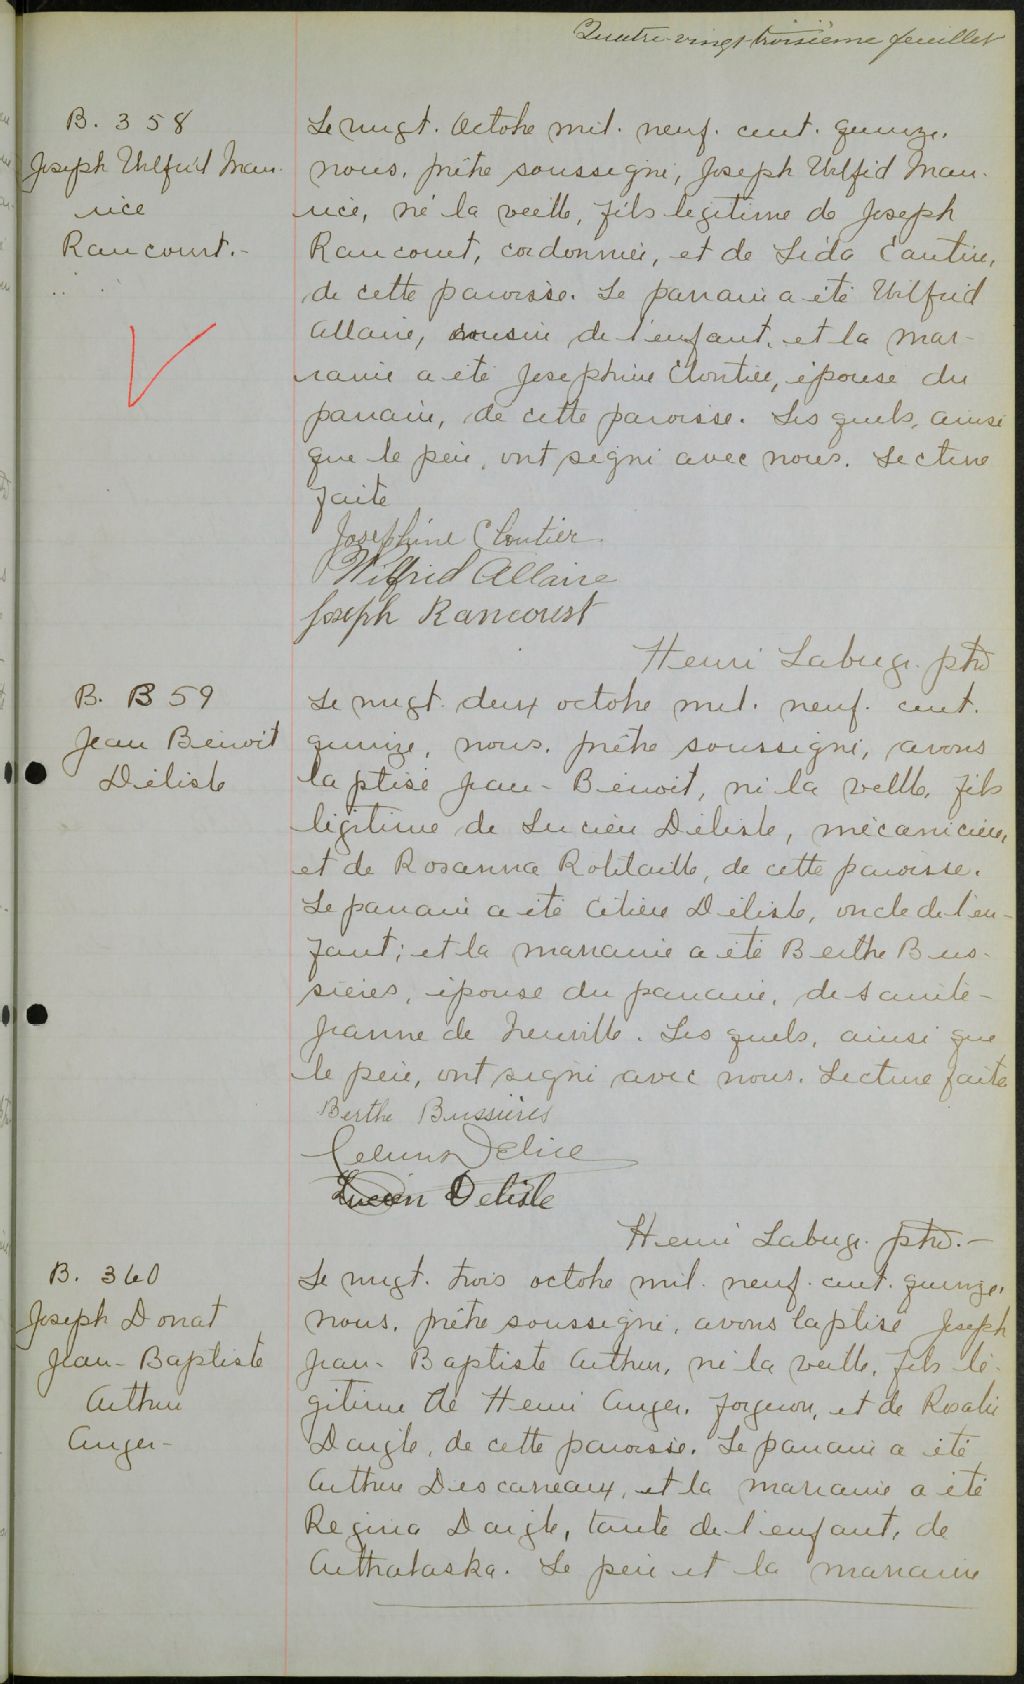 Quatre-vingt-troisième feuillet
B. 358
Joseph Wilfrid Mau-
rice
Rancourt.-
Le vingt. Octobre mil. neuf. cent. quinze.
nous, prêtre soussigné, Joseph Wilfrid Mau-
rice, né la veille, fils légitime de Joseph
Rancourt, cordonnier, et de Lida Cloutier,
de cette paroisse. Le parrain a été Wilfrid
Allaire, cousin de l'enfant, et la mar-
raine a été Josephine Cloutier, épouse du
parrain, de cette paroisse. Les quels, ainsi
que le père, ont signé avec nous. Lecture
faite
Josephine Cloutier.
Wilfrid Allaire
Joseph Rancourt
Henri ptre
B. B59
Jean Benoit
Delisle
Le vingt. deux octobre mil. neuf. cent.
quinze, nous, prêtre soussigné, avons
baptisé Jean-Benoit, né la veille, fils
légitime de Lucien Delisle, mécanicien,
et de Rosanna Robitaille, de cette paroisse.
Le parrain a été Delisle, oncle de l'en-
fant; et la marraine a été Berthe Bus-
sières, épouse du parrain, de Sainte-
Jeanne de Neuville. Les quels, ainsi que
le père, ont signé avec nous. Lecture faite
Berthe Bussières
Delice
Lucien Delisle
Henri ptre.-
B. 360
Joseph Donat
Jean-Baptiste
Arthur
Anger-
Le vingt. trois octobre mil. neuf. cent. quinze.
nous, prêtre soussigné, avons baptisé Joseph
Jean-Baptiste Arthur, né la veille, fils lé-
gitime de Henri Anger, forgeron, et de Rosalie
Daigle, de cette paroisse. Le parrain a été
Arthur Descarreaux, et la marraine a été
Regina Daigle, tante de l'enfant, de
Arthabaska. Le père et la marraine